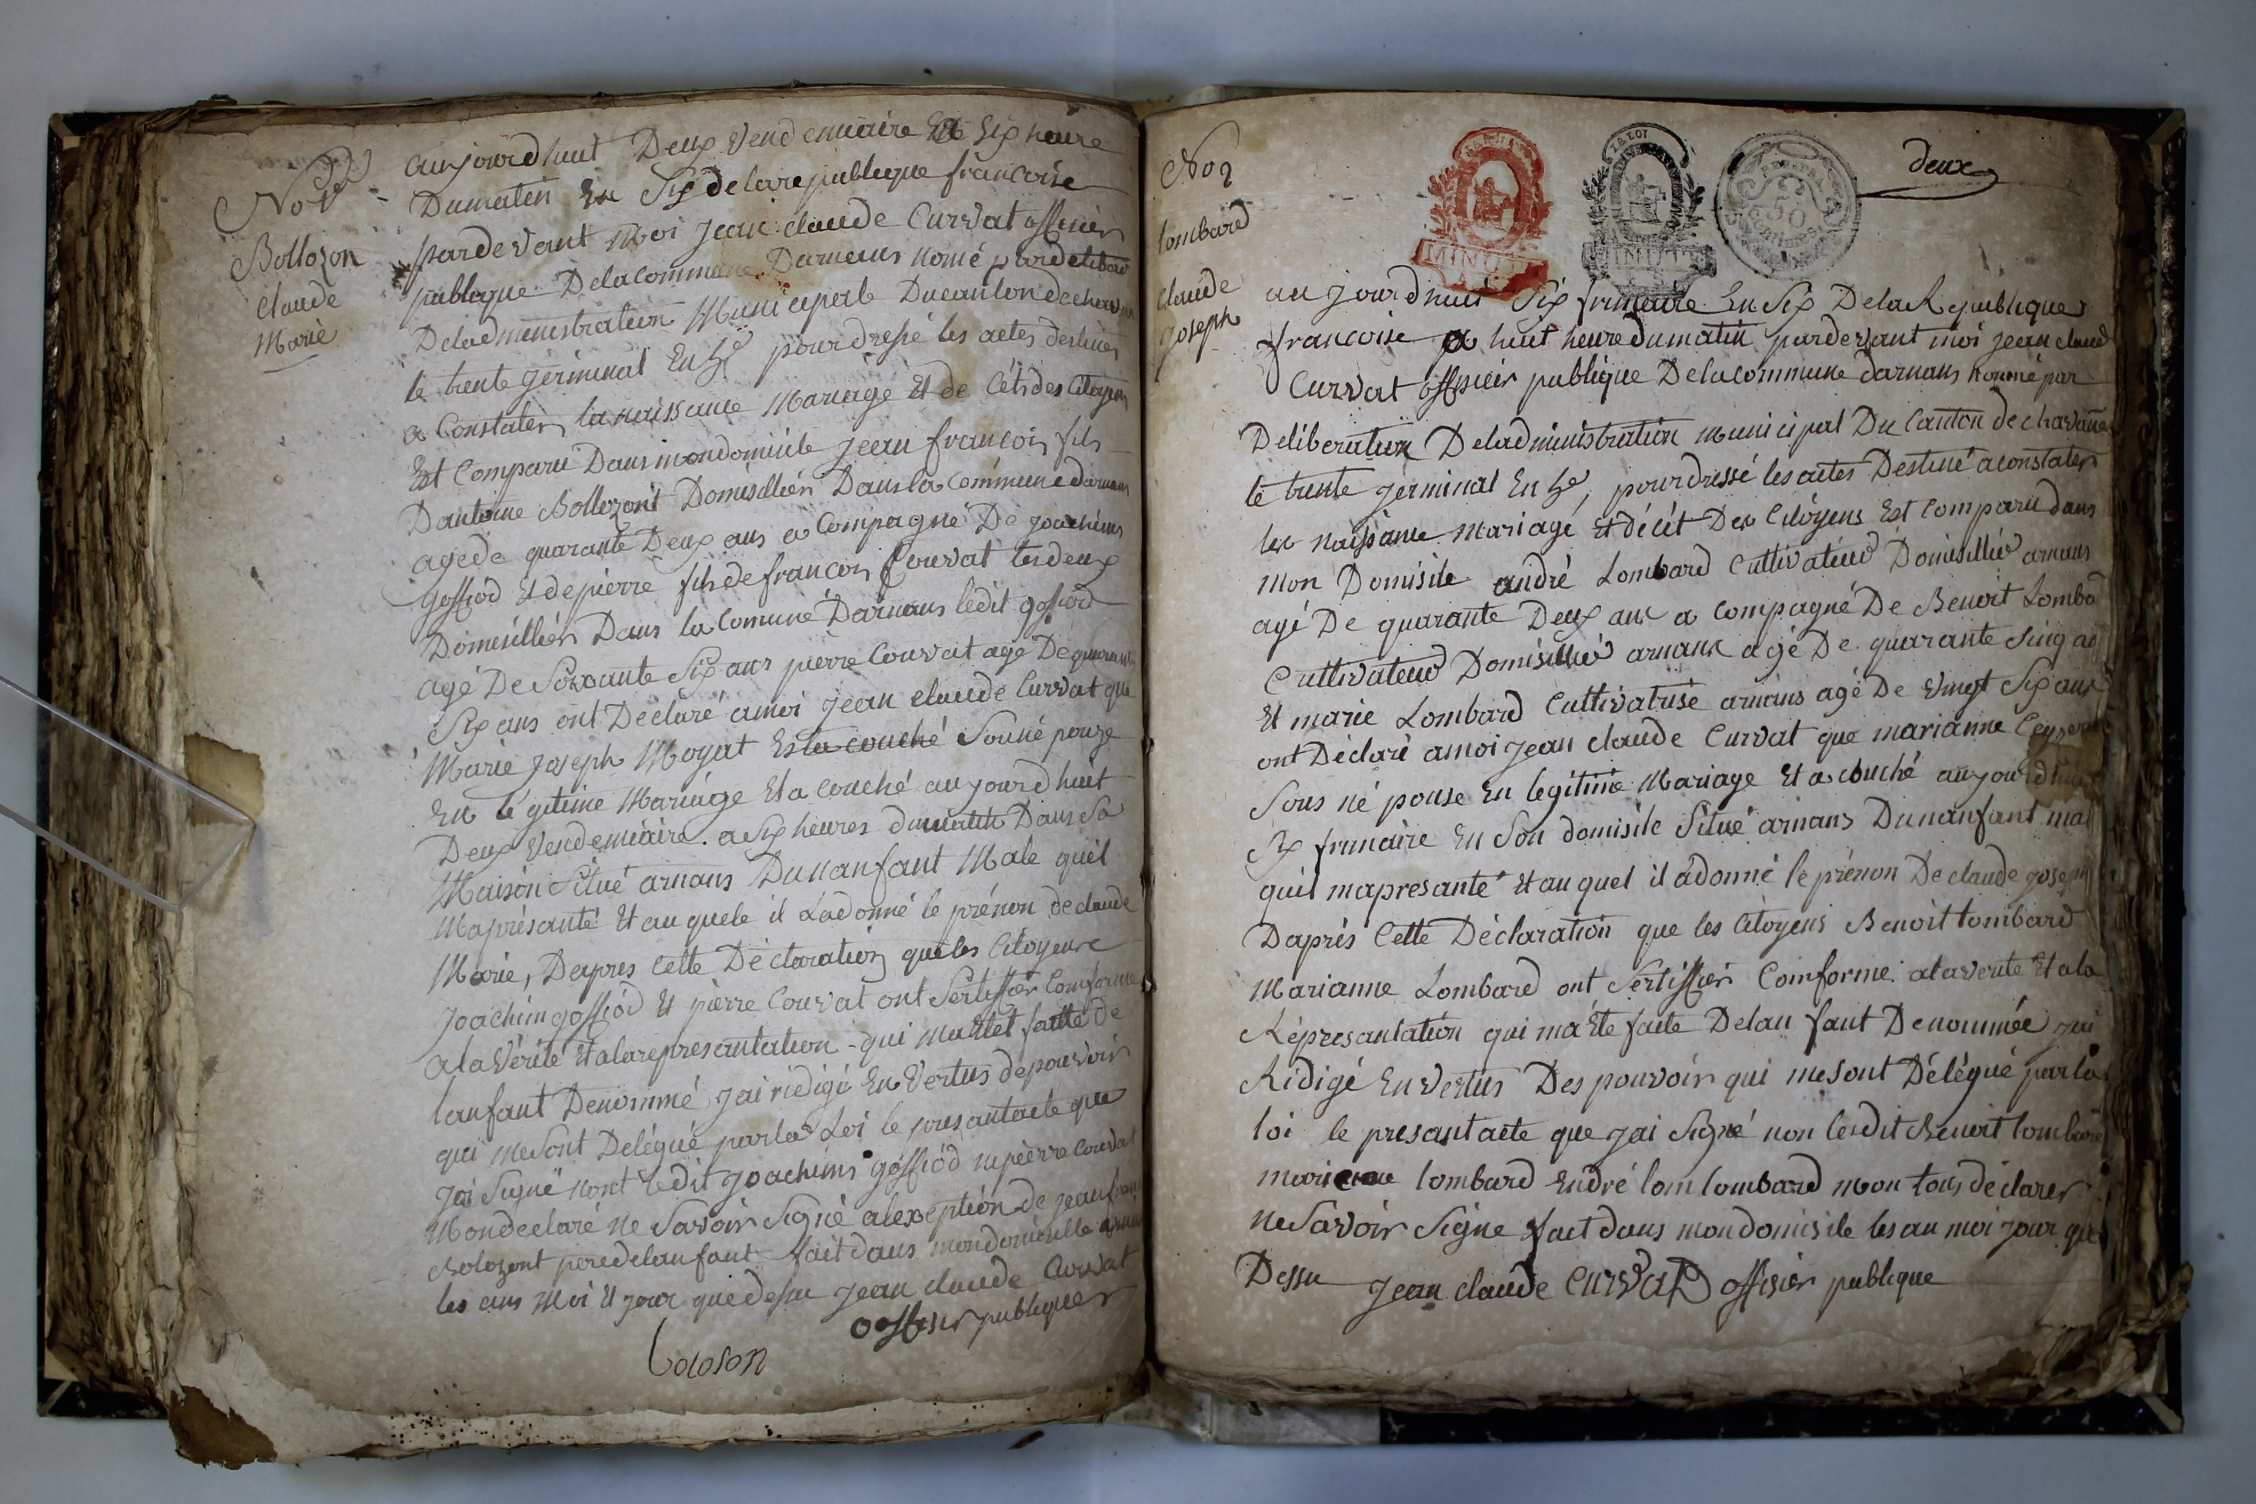 No 1er
Bollozon
claude
Marie
aujourdhuit Deux vendemiaire Et a six heure
Dumatin En Six delarepubliique francoise
pardevant Moi jean claude Curvat offisier
publique Delacommune Darnans nomé pardeliberó
Deladministration Municipale Ducanton dechavan
le trente jerminal En 5e pourdressé les actes destines
a Constater la naissance Mariage Et de Cets des Citoyens
Est Comparu Dans mondomisile jean francois fils
Dantoine Bollozont Domisillier Dans la Commune darnans
agéde quarante Deux ans a Compagné De joachims
goffiod Et depierre fils de francois Couvat tesdeux
Domisillier Dans la Comune Darnans ledit goffiod
agé De Soixante Six ans pierre Couvat agé Dequarante
Six ans ont Déclaré amoi jean claude Curvat que
Marie joseph Moyat Esta couché Souné pouze
En légitime Mariage Eta couché aujourdhuit
Deux vendemiaire a Six heures dumatin Dans Sa
Maison Situé arnans Dunanfant Male quil
Maprésanté Et au quele il Ladonné le prénon declaude
Marie, Dapres Cette Déclaration queles Citoyens
joachim goffiod Et pierre Couvat ont Sertiffier Comforme
ala vérité Et alareprésantation qui maetet faitte de
lanfant Denommé jai rédigé En vertus depouvoir
qui mesont Délégué parla Loi le présantacte que
jai Signé nont ledit joachims goffiod nipierre Couvat
Mondeclaré ne Savoir Signé alexeption de jeanfran
Bolozont peredelanfant fait dans mondomisille arnans
les ans Moi Et jour quedessu jean claude Curvat
offisier publique
boloson
No 2
lombard
Claude
joseph
deux
LA LOI
MINUTE
MINUTE
50
Centimes
aujourdhuit Six frimaire En Six DelaRepublique
francoise a huit heuredumatin pardevant moi jean claud
Curvat offisier publique Delacommune darnans nommé par
Deliberation Deladministration municipal Du Canton dechavane
le trente jerminal En 5e, pourdressé les actes Destiné aconstater
les Naissance Mariagé Et décèt Des Citoyens Est Comparu dans
mon Domisile andré Lombard Cultivateur Domisillié arnans
agé De quarante Deux ans a compagné De Benoit Lomba
Cultivateur Domisillié arnans agé De quarante Sinq an
Et marie Lombard Cultivatrise arnans agé De vingt Six ans
ont Déclaré amoi jean claude Curvat que marianne
Sous né pouse En legitime Mariage Et a couché aujourdhui
Six frimaire En Son domisile Situé arnans Dunanfant mal
quil mapresanté Et au quel il adonné le prénon De claude joseph
Daprés Cette Déclaration que les Citoyens Benoit lombard
Marianne Lombard ont Sertiffier Comforme alaverité Et ala
Répresantation qui maété faite Delan fant Denommée jai
Rédigé En vertus Des pouvoir qui mesont Délégué par la
loi le presantacte que jai Signé non lesdit Benoit lombard
marianne lombard Endré lom lombard mon tous déclarer
ne Savoir Signe fait dans mondomisile les an moi jour que
Dessu jean claude Curvat offisier publique